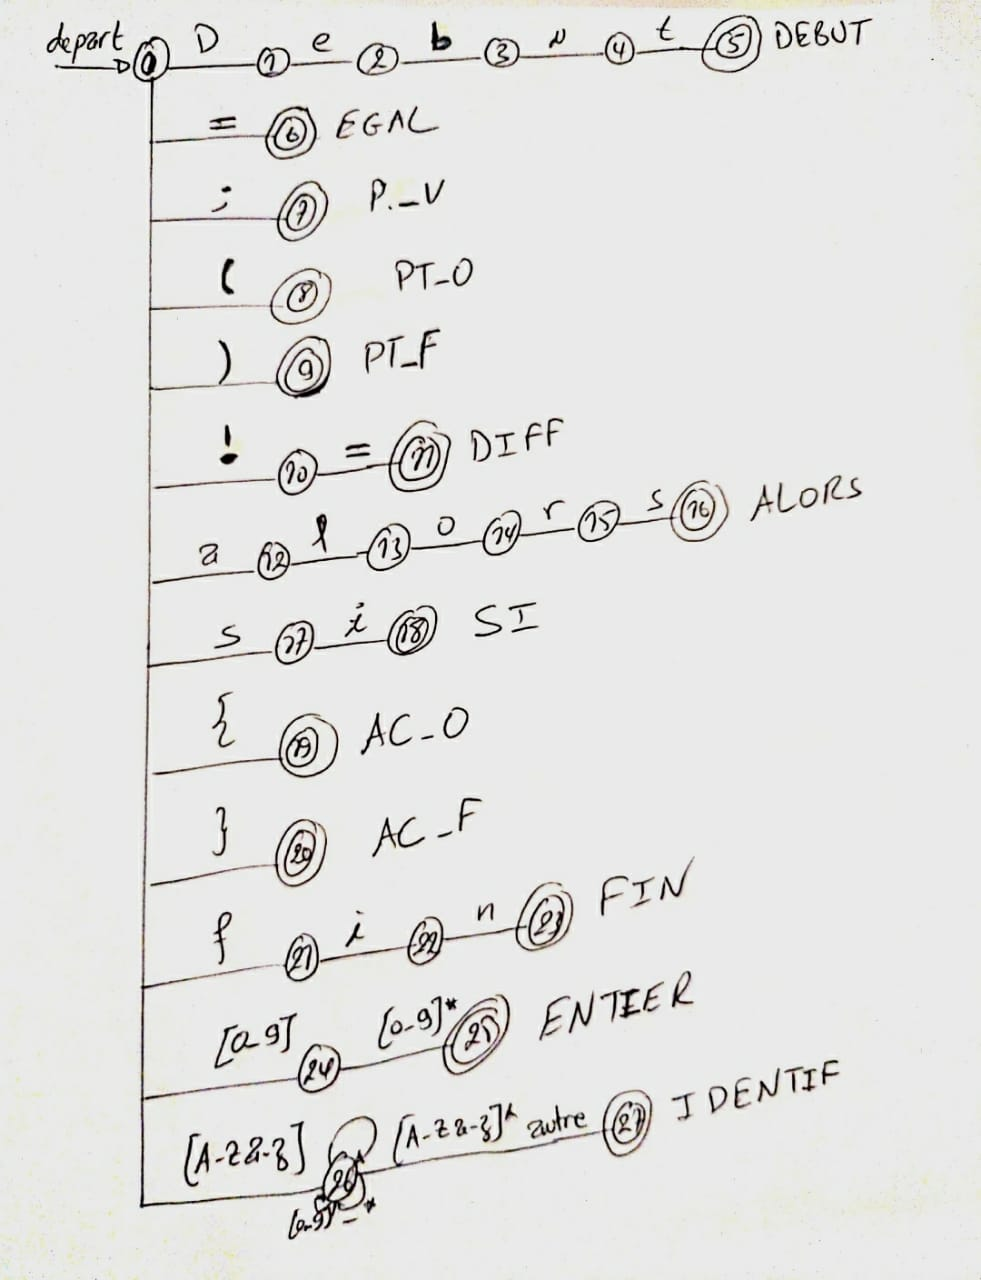 depart 0 D 1 e 2 b 3 u 4 t 5 DEBUT
= 6 EGAL
; 7 P._V
( 8 PT_O
) 9 PT_F
! 10 = 11 DIFF
a 12 l 13 o 14 r 15 s 16 ALORS
s 17 i 18 SI
{ 19 AC_O
} 20 AC_F
f 21 i 22 n 23 FIN
[0-9] 24 [0-9]* 25 ENTIER
[A-Z a-z] 26 [A-Z a-z]* autre 27 IDENTIF
[0-9] _ *